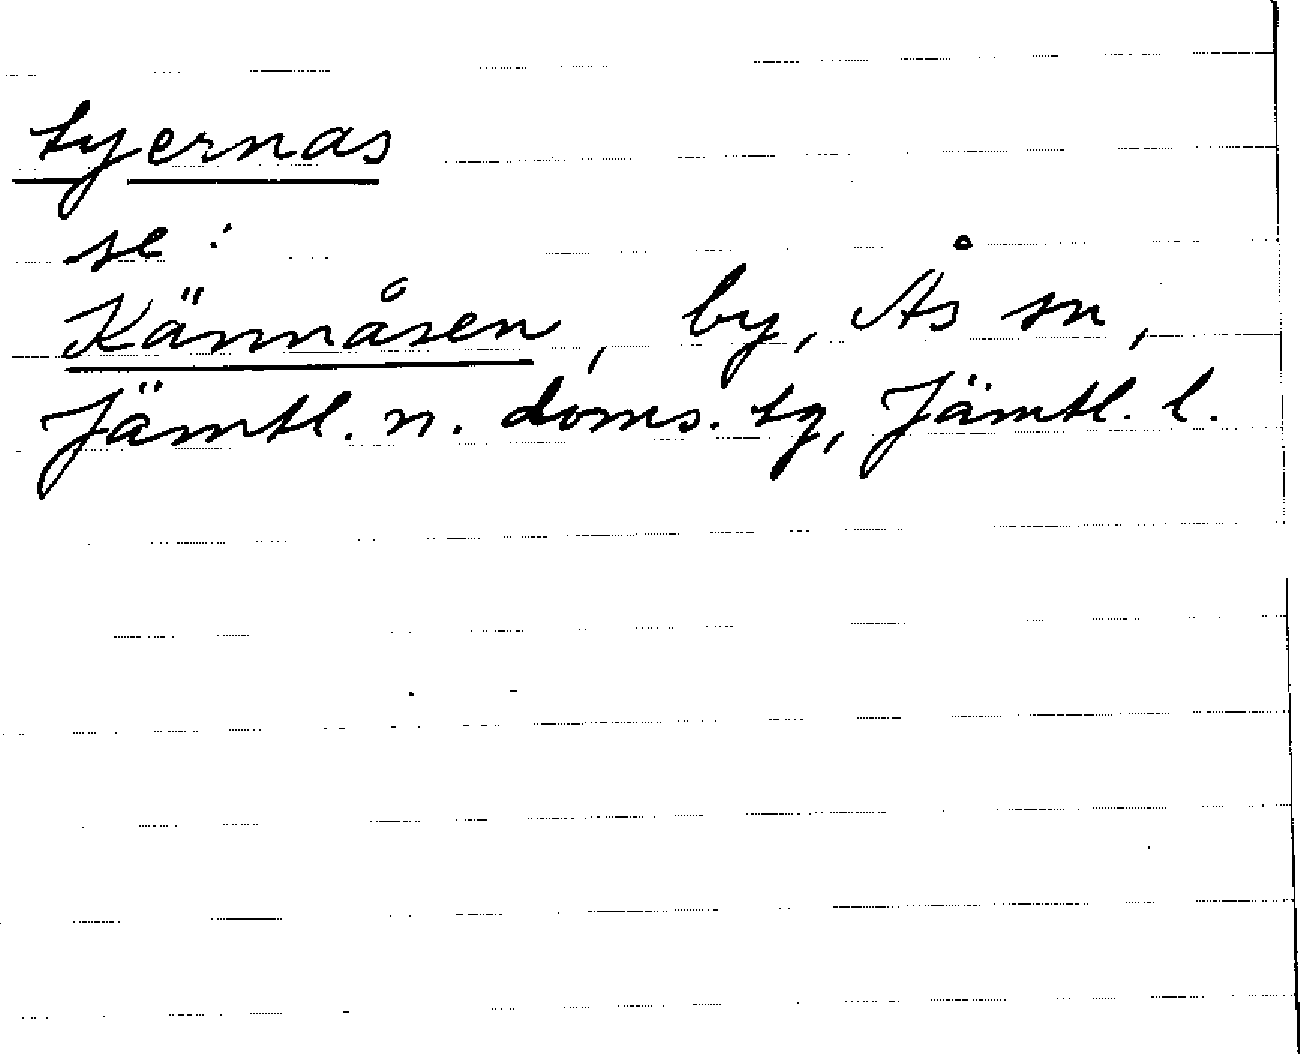 tyernas
se :
Kännåsen, by, Ås sn,
Jämtl. n. doms. tg, Jämtl. l.